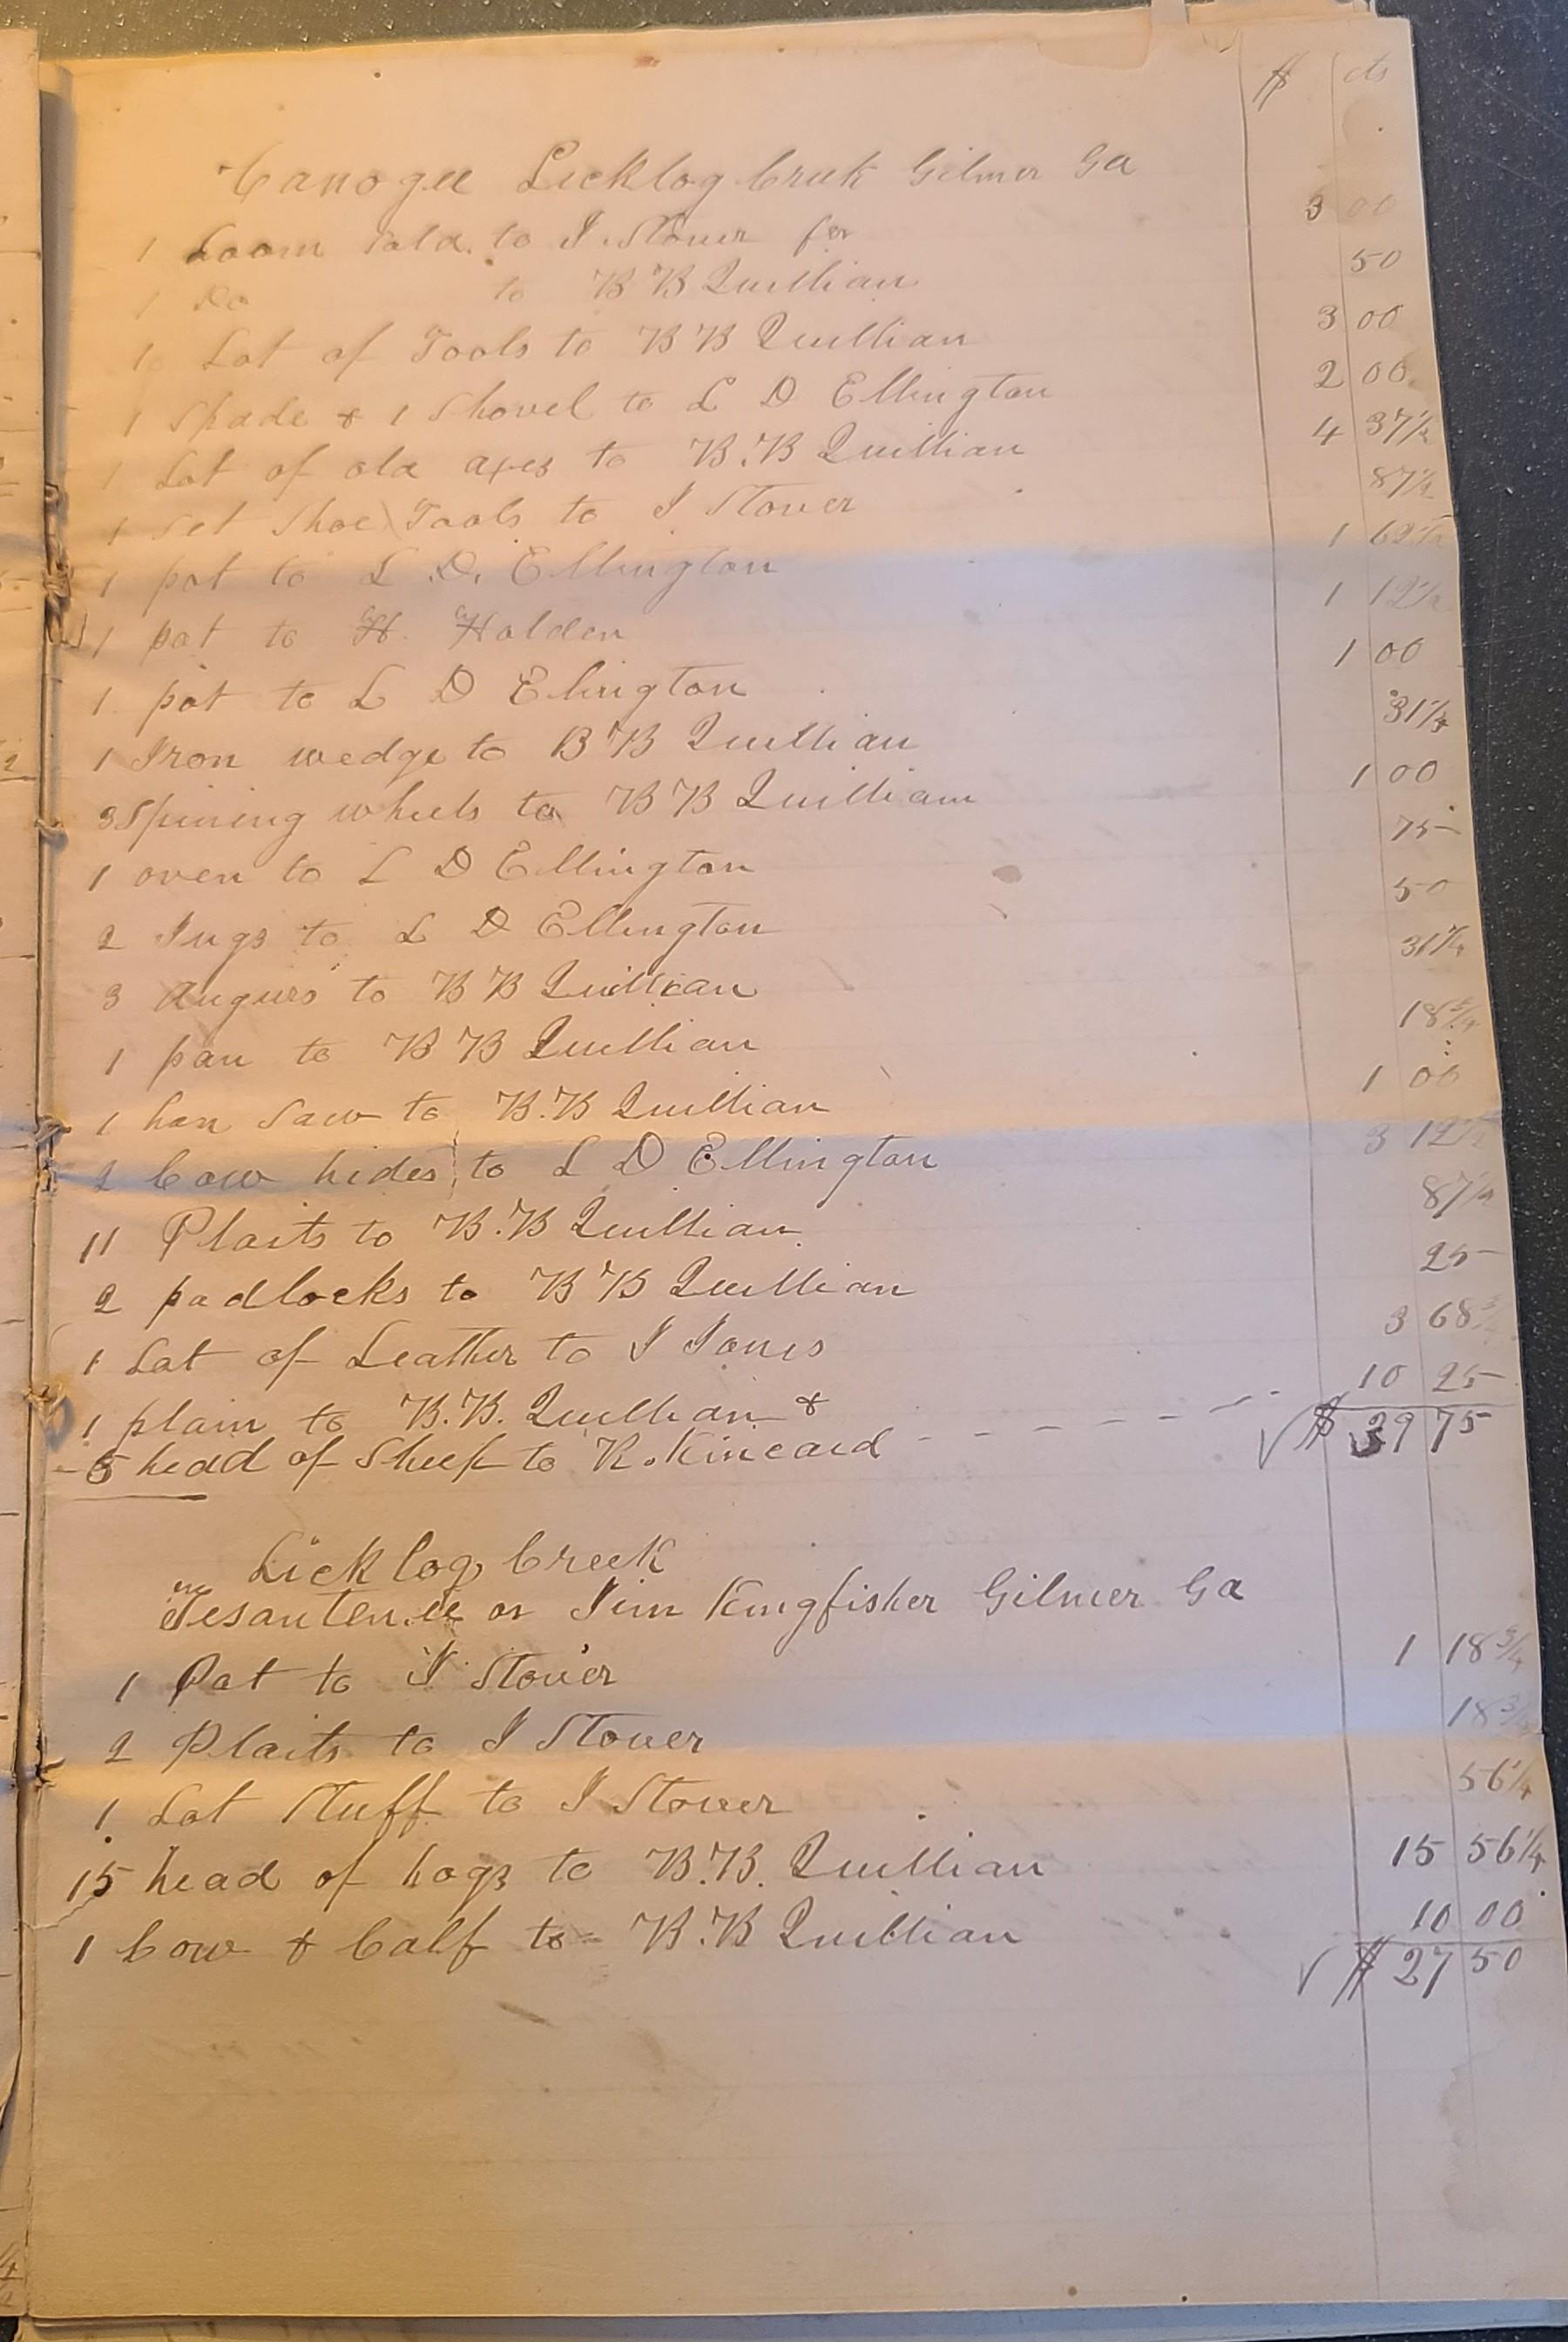 $ cts
Canogee Licklog Creek Gilmer Ga
1 Loom Sold to J. Stover for 3 00
1 Do to B B Quillian 50
Lot of Tools to B B Quillian 3 00
1 Spade & 1 Shovel to L D Ellington 2 00
1 Lot of old axes to B.B Quillian 4 37 1/2
1 set Shoe Tools to J Stover 87 1/2
1 pot to L. D. Ellington 1 62 1/2
1 pot to H. Holden 1 12 1/2
1 pot to L D Elington 1 00
1 Iron wedge to B B Quillian 31 1/4
3 Spining wheels to B B Quilliam 1 00
1 oven to L D Ellington 75
2 Jugs to L D Ellington 50
3 Augurs to B B Quillian 31 1/4
1 pan to B B Quillian 18 3/4
1 han Saw to B.B Quillian 1 00
2 Cow hides to L D Ellington 3 12 1/2
11 Plaits to B.B Quillian 87 1/2
2 padlocks to B B Quillian 25
1 Lot of Leather to J Jones 3 68 3/4
1 plain to B.B. Quillian &
5 head of Sheep to R. Kincaid 10 25
$ 39 75
Licklog Creek
Jim Kingfisher Gilmer Ga
1 Pot to J Stover 1 18 3/4
2 Plaits to J Stover 18 3/4
1 Lot Stuff to J Stover 56 1/4
15 head of hogs to B.B. Quillian 15 56 1/4
1 Cow & Calf to B.B Quillian 10 00
$ 27 50